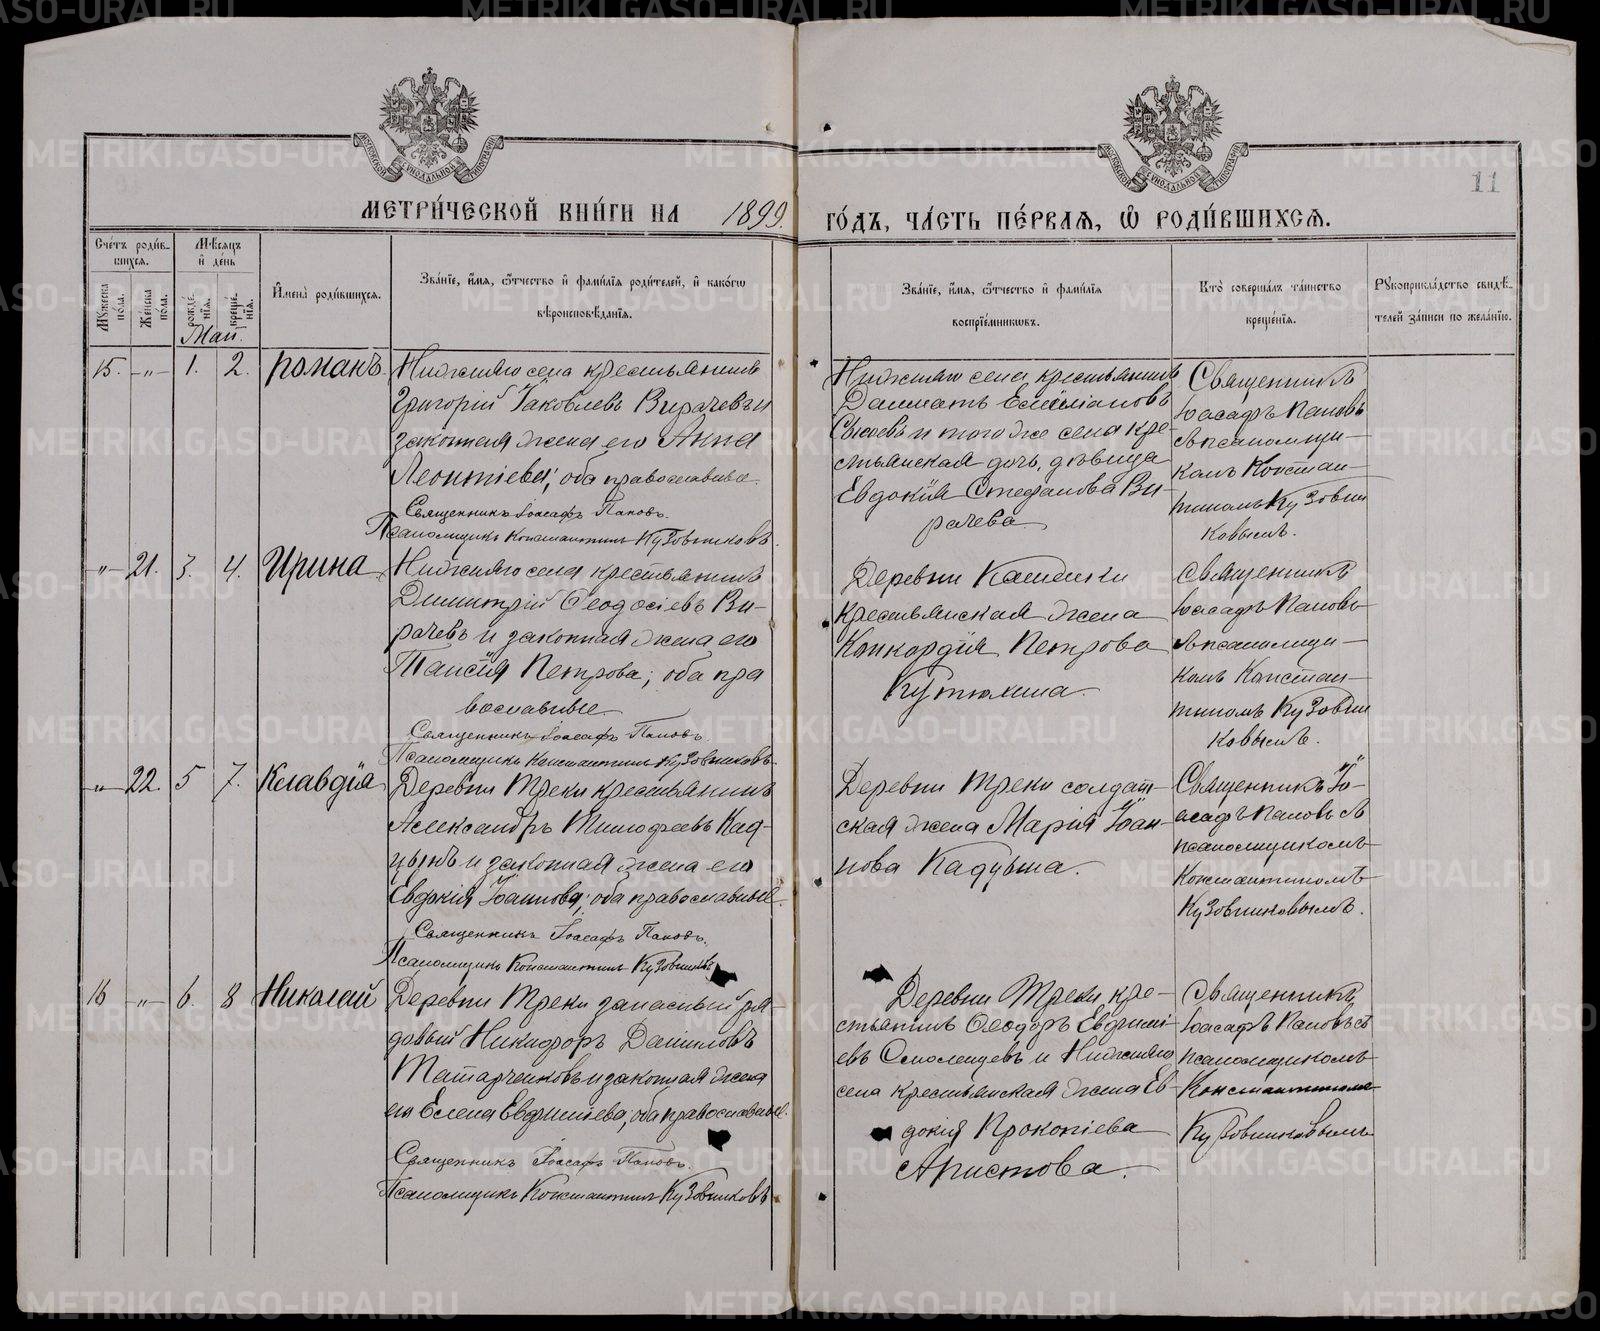 МЕТРИ́ЧЕСКОЙ КНИ́ГИ НА 1899.
ГО́ДЪ, ЧА́СТЬ ПЕ́РВАЯ, Ѽ РОДИ́ВШИХСѦ.
11
Сче́тъ роди́вшихся.
Мужеска по́ла.
Же́нска по́ла.
Мѣ́сяцъ и́ де́нь
рожде́нїя.
креще́нїя.
И́мена̀ роди́вшихся.
Зва́нїе, и́мя, ѿ́чество и́ фами́лїя роди́телей, и́ како́гѡ
вѣроисповѣ́данїя.
Зва́нїе, и́мя, ѿ́чество и́ фами́лїя
воспрїе́мникѡвъ.
Кто̀ соверша́лъ та́инство
креще́нїя.
Рукоприкла́дство свидѣ́телей за́писи по жела́нїю.
Май.
15. -"- 1. 2. Романъ.
Нижняго села крестьянинъ
Григорій Іаковлевъ Вирачевъ и
законная жена его Анна
Леонтіева; оба православные.
Священникъ Іоасафъ Пановъ.
Псаломщикъ Константинъ Кузовниковъ.
Нижняго села крестьянинъ
Далматъ Емиліановъ
Сысоевъ и того же села кре-
стьянская дочь, дѣвица
Евдокія Стефанова Ви-
рачева.
Священникъ
Іоасафъ Пановъ
съ псаломщи-
комъ Констан-
тиномъ Кузовни
ковымъ.
-"- 21. 3. 4. Ирина
Нижняго села крестьянинъ
Димитрій Ѳеодосіевъ Ви-
рачевъ и законная жена его
Таисія Петрова; оба пра
вославные.
Священникъ Іоасафъ Пановъ.
Псаломщикъ Константинъ Кузовниковъ.
Деревни Кашинки
крестьянская жена
Конкордія Петрова
Кутюхина.
Священникъ
Іоасафъ Пановъ
съ псаломщи-
комъ Констан-
тиномъ Кузовни
ковымъ.
-"- 22. 5 7. Клавдія
Деревни Треки крестьянинъ
Александръ Тимофеевъ Кад-
цынъ и законная жена его
Евдокія Іоаннова; оба православные.
Священникъ Іоасафъ Пановъ.
Псаломщикъ Константинъ Кузовниковъ
Деревни Треки солдат-
ская жена Марія Іоан-
нова Кадцына.
Священникъ Іо-
асафъ Пановъ съ
псаломщикомъ
Константиномъ
Кузовниковымъ.
16 -"- 6. 8 Николай
Деревни Треки запасный ря-
довый Никифоръ Даниловъ
Татарченковъ и законная жена
его Елена Евфиміева; оба православные.
Священникъ Іоасафъ Пановъ.
Псаломщикъ Константинъ Кузовниковъ
Деревни Треки кре-
стьянинъ Ѳеодоръ Евфимі-
евъ Смоленцевъ и Нижняго
села крестьянская жена Ев-
докія Прокопіева
Аристова.
Священникъ
Іоасафъ Пановъ съ
псаломщикомъ
Константиномъ
Кузовниковымъ
METRIKI.GASO-URAL.RU